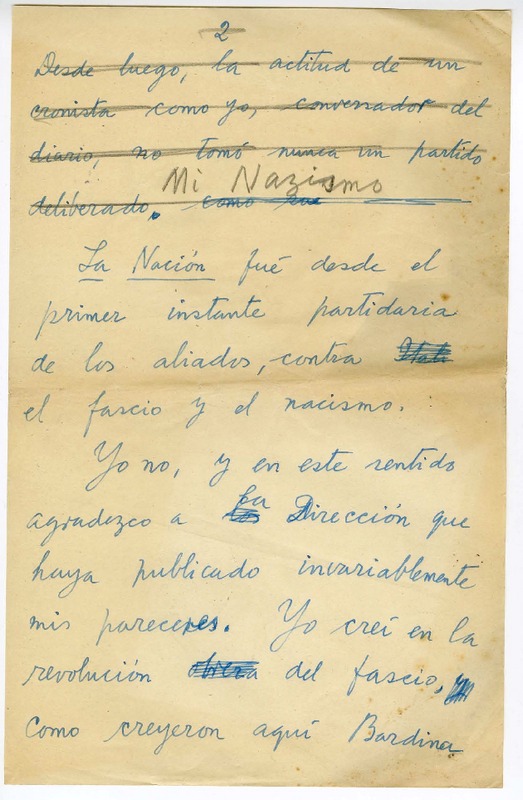 2
Desde luego, la actitud de un
cronista como yo, conversador del
diario, no tomó nunca un partido
Mi Nazismo
deliberado. como fue
La Nación fué desde el
primer instante partidaria
de los aliados, contra Itali
el fascio y el nacismo.
Yo no, y en este sentido
agradezco a los la Dirección que
haya publicado invariablemente
mis pareceres. Yo creí en la
revolución obrera del fascio,
como creyeron aquí Bardina